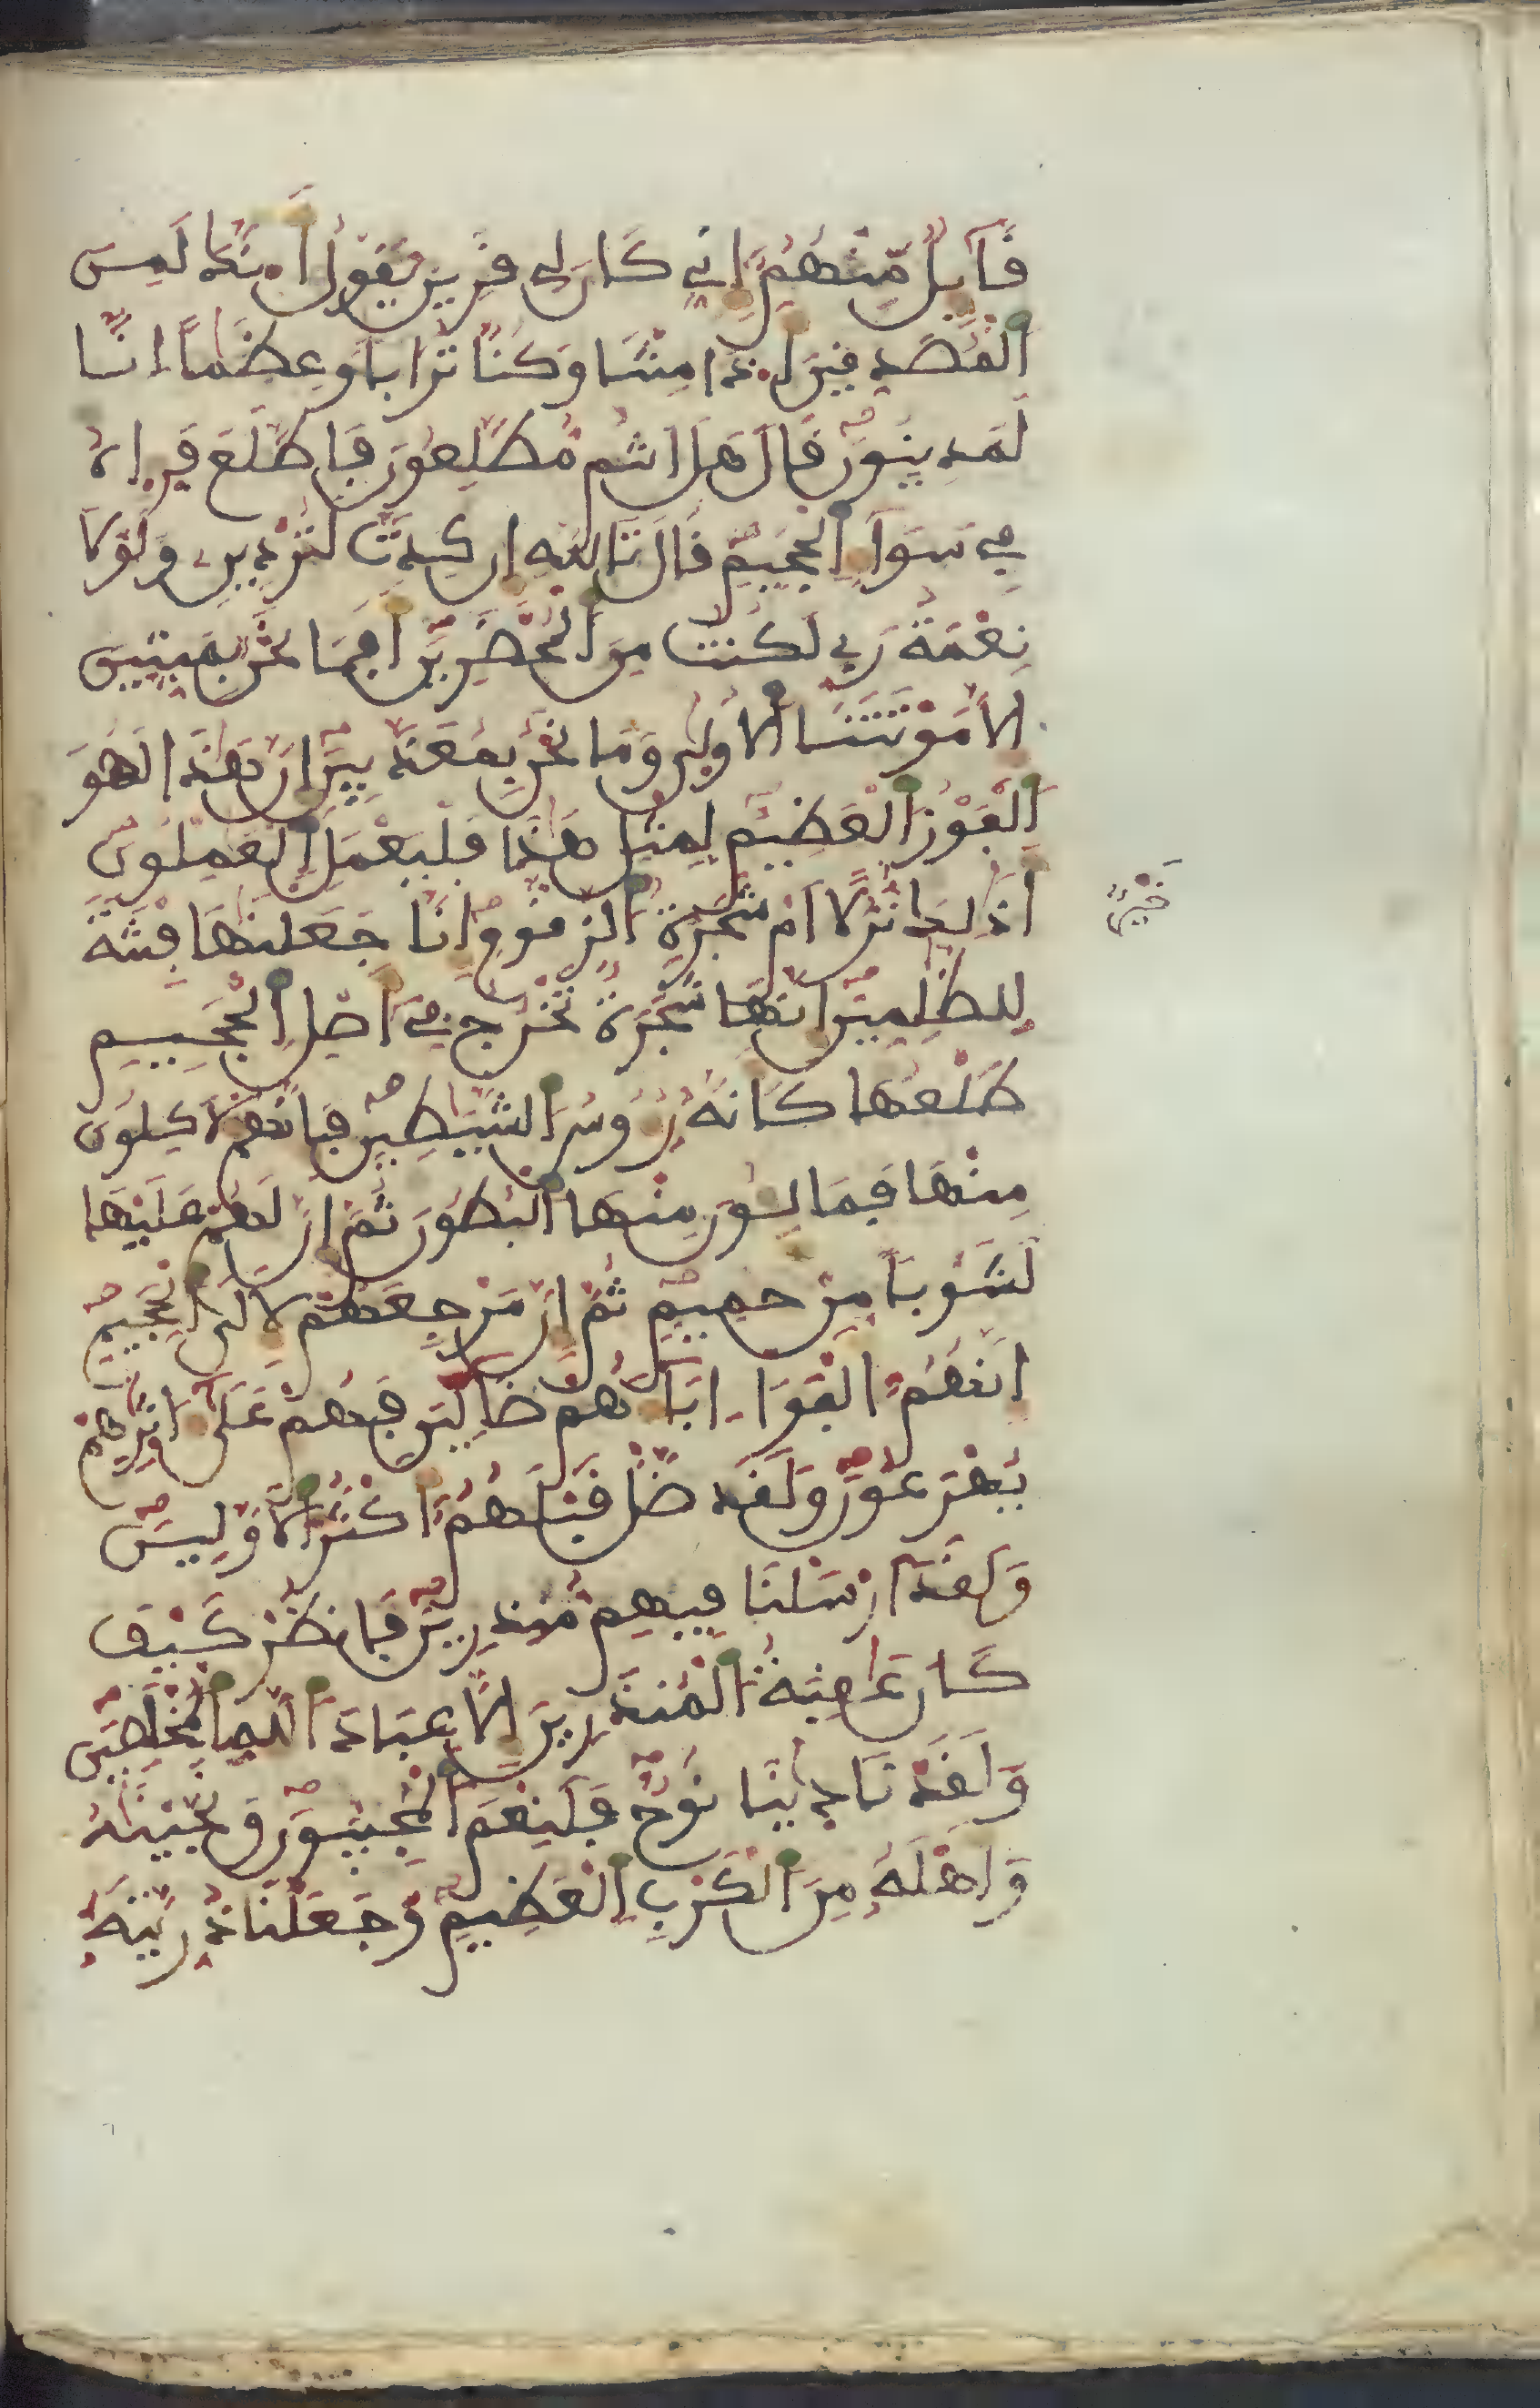 قَآئِلٌ مِّنْهُمُ إِنِّي كَانَ لِي قَرِينٌ يَقُولُ أَئِنَّكَ لَمِنَ
اَلْمُصَدِّقِينَ أَئِذَا مِتْنَا وَكُنَّا تُرَاباً وَعِظَٰماً اِنَّا
لَمَدِينُونَ قَالَ هَلَ اَنتُم مُّطَّلِعُونَ فَاطَّلَعَ فَرِءاهُ
فِي سَوَآءِ اِلْجَحِيمِ قَالَ تَاللَّهِ إِن كِدتَّ لَتُرْدِينِ وَلَوْلَا
نِعْمَةُ رَبِّي لَكُنتُ مِنَ اَلْمُحْضَرِينَ أَفَمَا نَحْنُ بِمَيِّتِينَ
إِلَّا مَوْتَتَنَا اَلُاولَىٰ وَمَا نَحْنُ بِمُعَذَّبِينَ إِنَّ هَٰذَا لَهُوَ
اَلْفَوْزُ اُلْعَظِيمُ لِمِثْلِ هَٰذَا فَلْيَعْمَلِ اِلْعَٰمِلُونَ
أَذَٰلِكَ خَيْرٌ نُّزُلاً اَمْ شَجَرَةُ اُلزَّقُّومِ إِنَّا جَعَلْنَٰهَا فِتْنَةً
لِّلظَّٰلِمِينَ إِنَّهَا شَجَرَةٌ تَخْرُجُ فِي أَصْلِ اِلْجَحِيمِ
طَلْعُهَا كَأَنَّهُ رُءُوسُ اُلشَّيَٰطِينِ فَإِنَّهُمْ لَأَكِلُونَ
مِنْهَا فَمَالِئُونَ مِنْهَا اَلْبُطُونَ ثُمَّ إِنَّ لَهُمْ عَلَيْهَا
لَشَوْباً مِّنْ حَمِيمٍ ثُمَّ إِنَّ مَرْجِعَهُمْ لَإِلَى اَلْجَحِيمِ
إِنَّهُمُ أَلْفَوَا ءابَآءَهُمْ ضَآلِّينَ فَهُمْ عَلَىٰ ءاثَٰرِهِمْ
يُهْرَعُونَ وَلَقَد ضَّلَّ قَبْلَهُمُ أَكْثَرُ اُلَاوَّلِينَ
وَلَقَدَ اَرْسَلْنَا فِيهِم مُّنذِرِينَ فَانظُرْ كَيْفَ
كَانَ عَٰقِبَةُ اُلْمُنذَرِينَ إِلَّا عِبَادَ اَللَّهِ اِلْمُخْلَصِينَ
وَلَقَدْ نَادَيٰنَا نُوحٌ فَلَنِعْمَ اَلْمُجِيبُونَ وَنَجَّيْنَٰهُ
وَأَهْلَهُ مِنَ اَلْكَرْبِ اِلْعَظِيمِ وَجَعَلْنَا ذُرِّيَّتَهُ